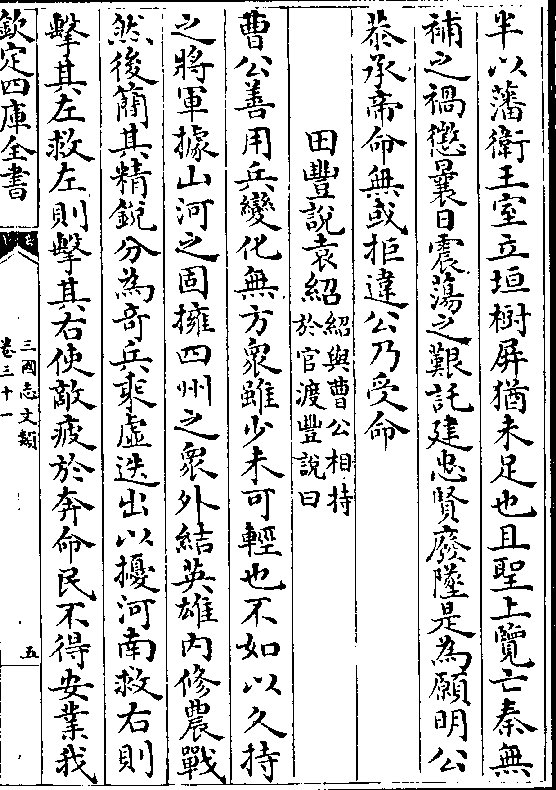 半以藩衛王室立垣樹屏猶未足也且聖上覽亡秦無
補之禍懲曩日震蕩之艱託建忠賢廢墜是為願明公
恭承帝命無或拒違公乃受命
田豐說袁紹紹與曹公相持
於官渡豐說曰
曹公善用兵變化無方衆雖少未可輕也不如以久持
之將軍據山河之固擁四州之衆外結英雄内修農戰
然後簡其精銳分為奇兵乘虛迭出以擾河南救右則
擊其左救左則擊其右使敵疲於奔命民不得安業我
欽定四庫全書
三國志文類
卷三十一
五